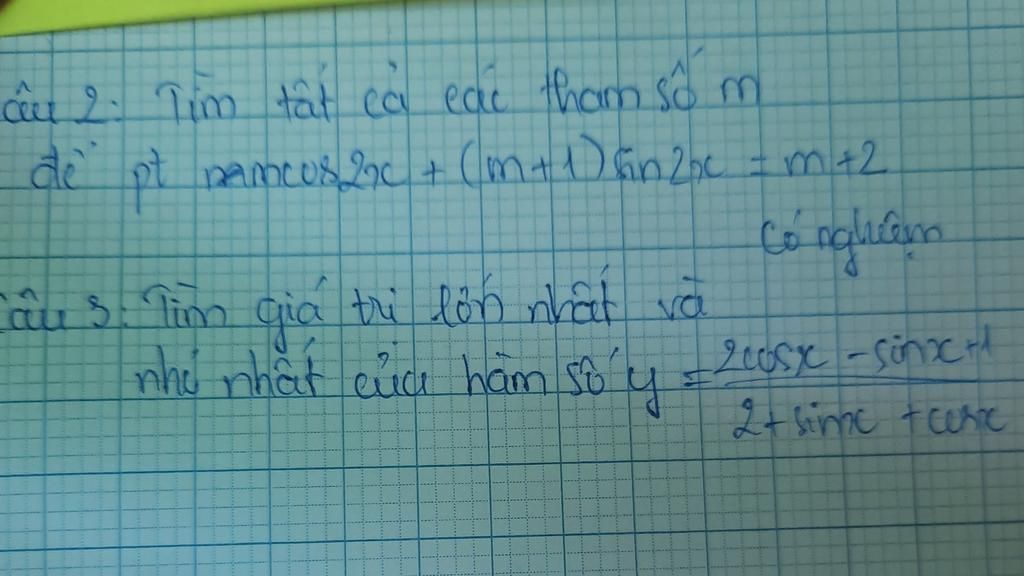 câu 2: Tìm tất cả các tham số m
để pt mcos2x + (m+1)sin2x = m+2
có nghiệm
câu 3: Tìm giá trị lớn nhất và
nhỏ nhất của hàm số y = 2cosx - sinx+1
2+ sinx + cosx